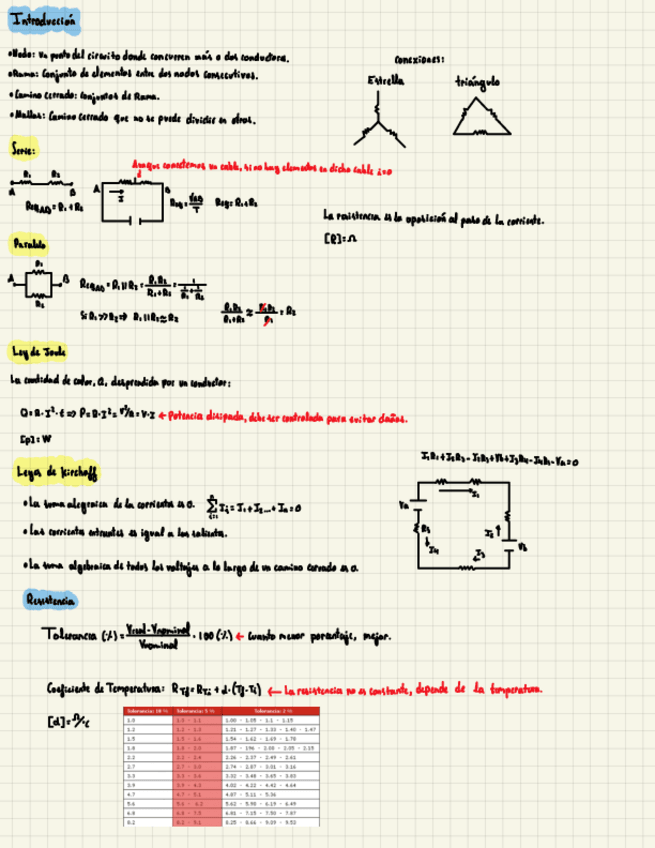 Introducción
•Nodo: Un punto del circuito donde concurren más o dos conductores.
•Rama: Conjunto de elementos entre dos nodos consecutivos.
•Camino cerrado: Conjuntos de Rama.
•Mallas: Camino cerrado que no se puede dividir en otros.
conexiones:
Estrella
triángulo
Serie:
Aunque conectemos un cable, si no hay elementos en dicho cable i=0
R₁ R₂
A B
ReqAB = R₁+R₂
A B
I
Req = VAB/I Req = R₁+R₂
La resistencia es la oposición al paso de la corriente.
[R]=Ω
Paralelo
R₁
A B
R₂
ReqAB = R₁||R₂ = R₁R₂/(R₁+R₂) = 1/(1/R₁+1/R₂)
Si R₁>>R₂ => R₁||R₂≈R₂
R₁R₂/(R₁+R₂) ≈ R₁R₂/R₁ = R₂
Ley de Joule
La cantidad de calor, Q, desprendida por un conductor:
Q=R·I²·t => P=R·I²=V²/R=V·I ← Potencia disipada, debe ser controlada para evitar daños.
[P]=W
Leyes de Kirchoff
•La suma algebraica de la corrientes es 0. ∑ Ii = I₁+I₂...+In=0
•Las corrientes entrantes es igual a las saliente.
•La suma algebraica de todos los voltajes a lo largo de un camino cerrado es 0.
Va
I₁
R₃
I₄
I₂
I₃
Vb
Resistencia
Tolerancia (%) = (Vreal-Vnominal)/Vnominal · 100 (%) ← Cuanto menor porcentaje, mejor.
Coeficiente de Temperatura: RTf=RTi+α·(Tf-Ti) ← La resistencia no es constante, depende de la temperatura.
[α]=Ω/°C
Tolerancia: 10 % Tolerancia: 5 % Tolerancia: 1 %
1.0 1.0 - 1.1 1.00 - 1.05 - 1.1 - 1.15
1.2 1.2 - 1.3 1.21 - 1.27 - 1.33 - 1.40 - 1.47
1.5 1.5 - 1.6 1.54 - 1.62 - 1.69 - 1.78
1.8 1.8 - 2.0 1.87 - 196 - 2.00 - 2.05 - 2.15
2.2 2.2 - 2.4 2.26 - 2.37 - 2.49 - 2.61
2.7 2.7 - 3.0 2.74 - 2.87 - 3.01 - 3.16
3.3 3.3 - 3.6 3.32 - 3.48 - 3.65 - 3.83
3.9 3.9 - 4.3 4.02 - 4.22 - 4.42 - 4.64
4.7 4.7 - 5.1 4.87 - 5.11 - 5.36
5.6 5.6 - 6.2 5.62 - 5.90 - 6.19 - 6.49
6.8 6.8 - 7.5 6.81 - 7.15 - 7.50 - 7.87
8.2 8.2 - 9.1 8.25 - 8.66 - 9.09 - 9.53